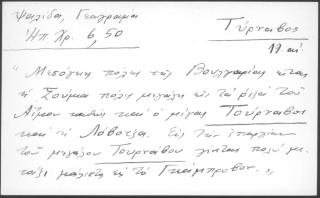 Ψαλίδα, Γεωγραφία
Τύρναβος
Ἠπ. Χρ. 6, 50
" Μεσόγειαι πόλεις τῆς Βουλγαρίας εἶναι
ἡ Σούμλα πόλις μεγάλη εἰς τὰ ῥιζὰ τοῦ
Αἵμου καθὼς καὶ ὁ μέγας Τούρναβος
καὶ ἡ Λόβοτζα. Εἰς τὴν ἐπαρχίαν
τοῦ μεγάλου Τουρνάβου γίνεται πολὺ με-
τάξι μάλιστα εἰς τὸ Γκάμπροβον. "